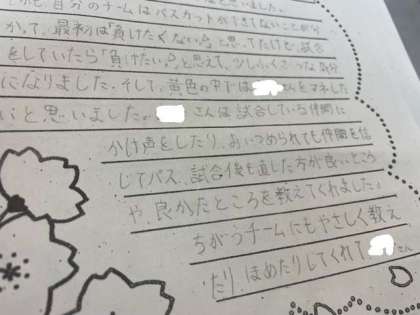 自分のチームはパスカットができていないことが分
かって、最初は「負けたくない。」と思ってたけど、試合
をしていたら「負けたい。」と思えて、少しふくざつな気分
になりました。そして、黄色の中では さんをマネした
いと思いました。 さんは試合している仲間に
かけ声をしたり、おいつめられても仲間を信
じてパス、試合後も直した方が良いところ
や、良かたところを教えてくれました。
ちがうチームにもやさしく教え
たり、ほめたりしてくれて さん